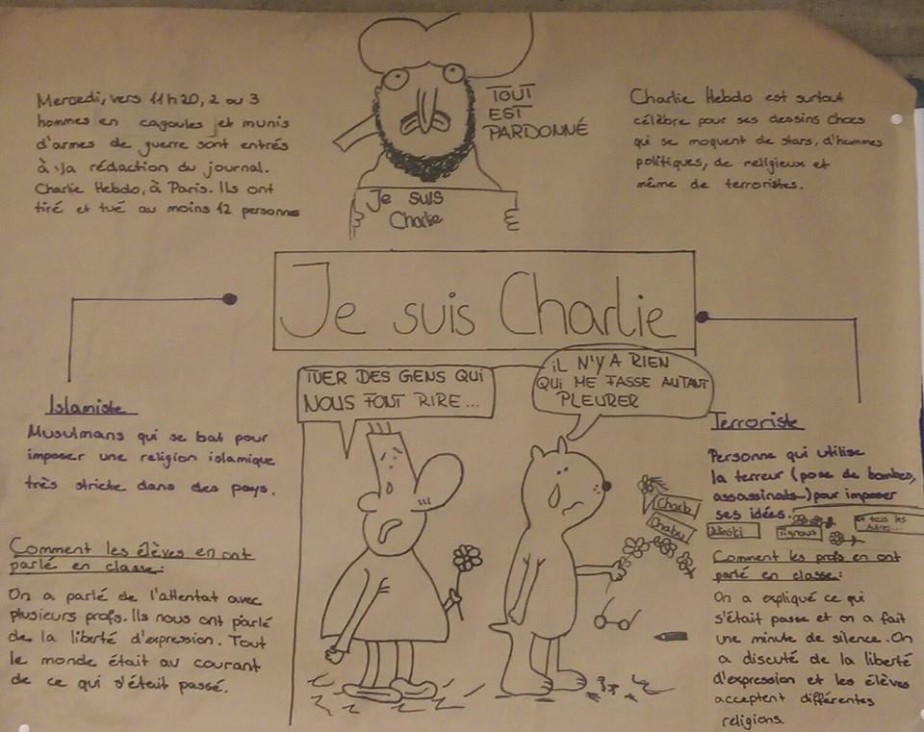 Mercedi, vers 11h20, 2 ou 3
hommes en cagoules et munis
d'armes de guerre sont entrés
à la rédaction du journal.
Charlie Hebdo, à Paris. Ils ont
tiré et tué au moins 12 personnes
TOUT
EST
PARDONNÉ
Je suis
Charlie
Charlie Hebdo est surtout
célèbre pour ses dessins chocs
qui se moquent de stars, d'hommes
politiques, de religieux et
même de terroristes.
Je suis Charlie
TUER DES GENS QUI
NOUS FONT RIRE...
IL N'Y A RIEN
QUI ME FASSE AUTANT
PLEURER
Islamiste
Musulmans qui se bat pour
imposer une religion islamique
très stricte dans des pays.
Comment les élèves en ont
parlé en classe:
On a parlé de l'attentat avec
plusieurs profs. Ils nous ont parlé
de la liberté d'expression. Tout
le monde était au courant
de ce qui s'était passé.
Terroriste
Personne qui utilise
la terreur (pose de bombes,
assassinats) pour imposer
ses idées.
Charb
Cabu
Tignous
Et tous les
autres...
Comment les profs en ont
parlé en classe:
On a expliqué ce qui
s'était passé et on a fait
une minute de silence. On
a discuté de la liberté
d'expression et les élèves
acceptent différentes
religions.